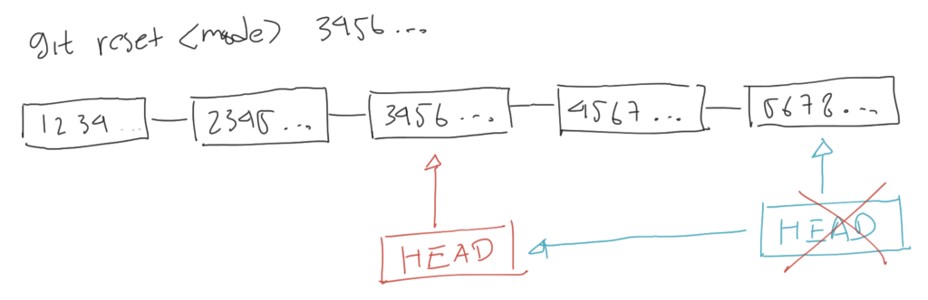 git reset <mode> 3456...
1234... 2345... 3456... 4567... 5678...
HEAD HEAD